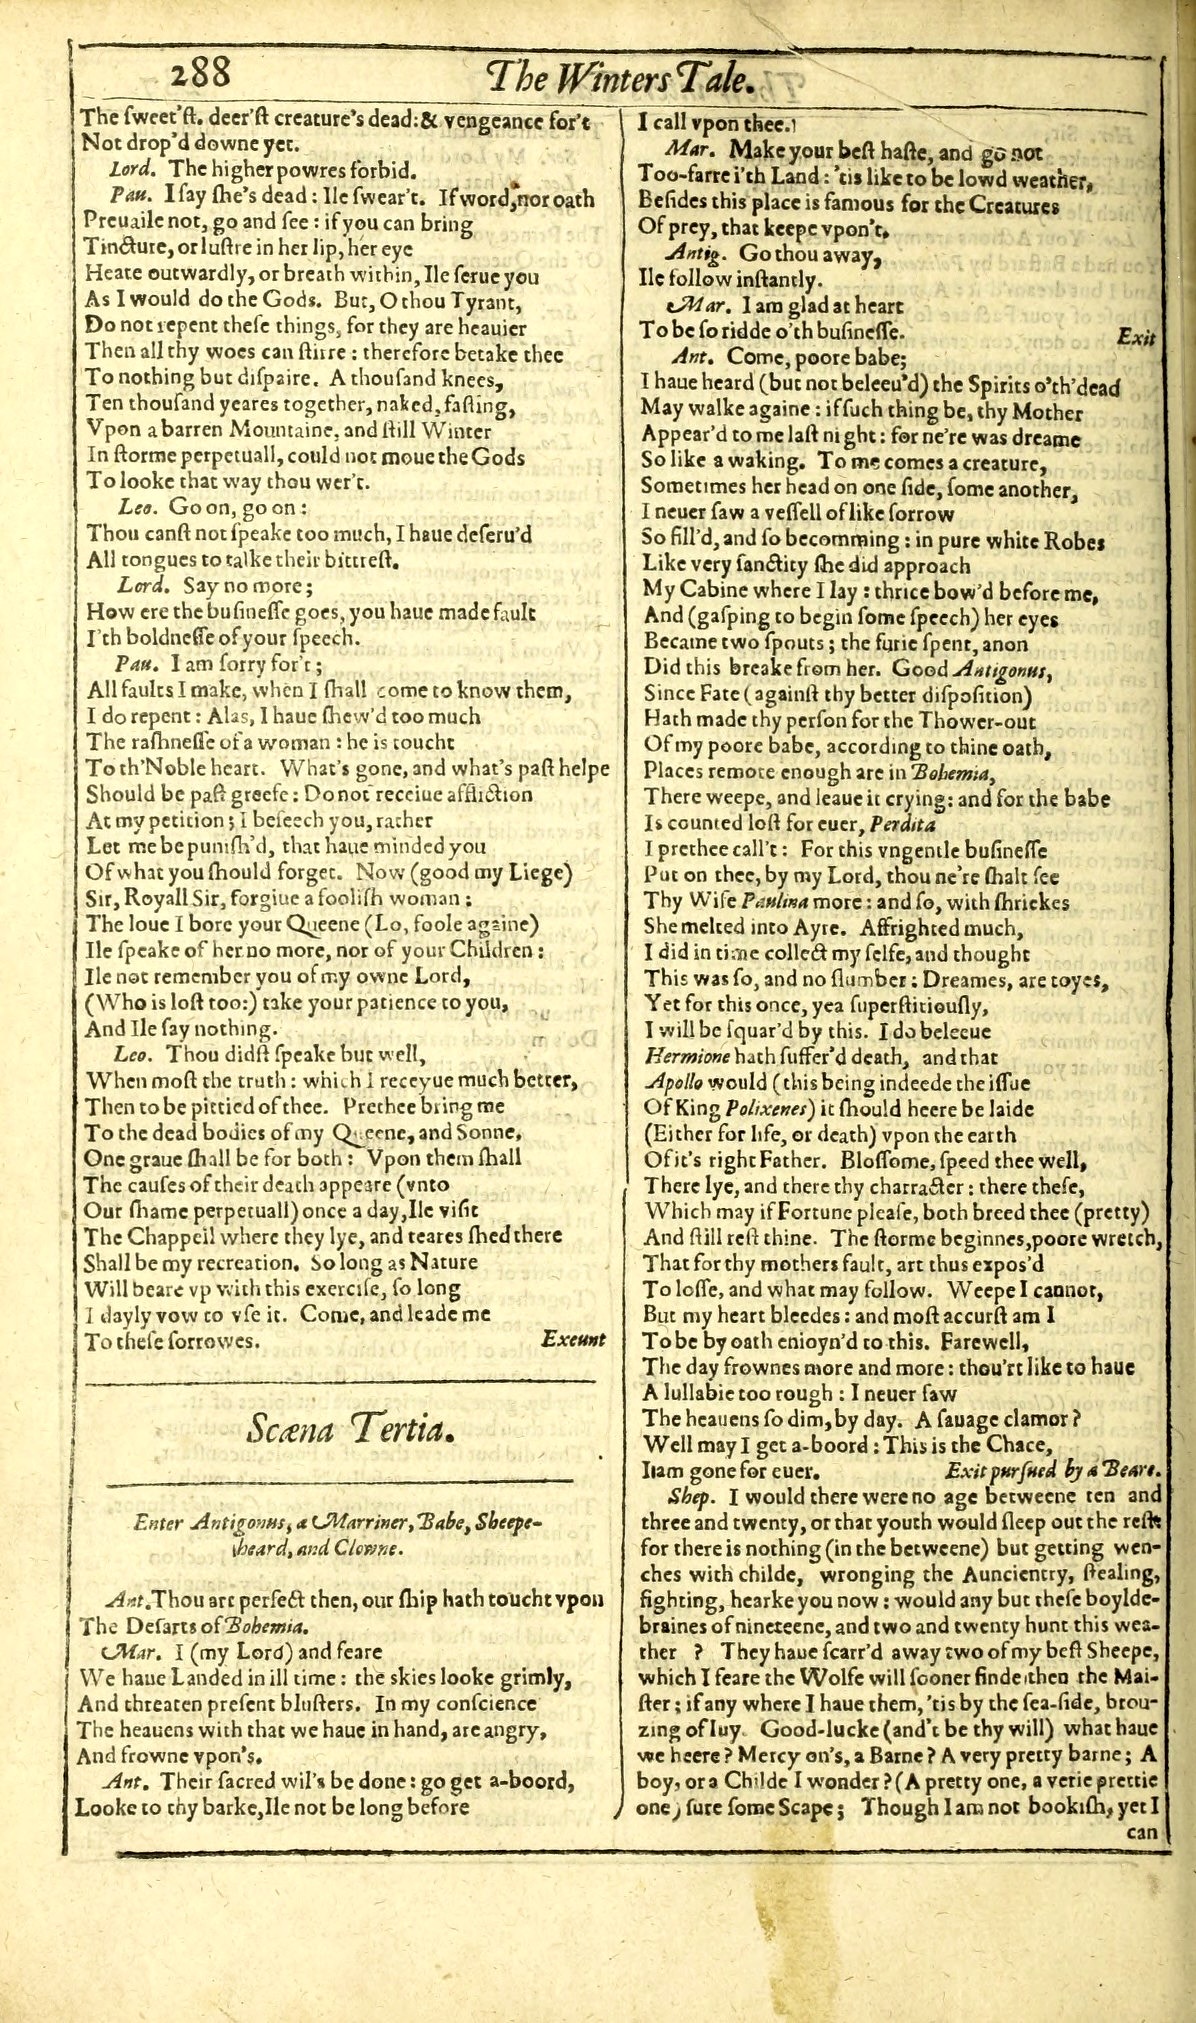 288
The Winters Tale.
The ſweet'ſt, deer'ſt creature's dead: & vengeance for't
Not drop'd downe yet.
Lord. The higher powres forbid.
Pau. I ſay ſhe's dead: Ile ſwear't. If word, nor oath
Preuaile not, go and ſee: if you can bring
Tincture, or luſtre in her lip, her eye
Heate outwardly, or breath within, Ile ſerue you
As I would do the Gods. But, O thou Tyrant,
Do not repent theſe things, for they are heauier
Then all thy woes can ſtirre: therefore betake thee
To nothing but diſpaire. A thouſand knees,
Ten thouſand yeares together, naked, faſting,
Vpon a barren Mountaine, and ſtill Winter
In ſtorme perpetuall, could not moue the Gods
To looke that way thou wer't.
Leo. Go on, go on:
Thou canſt not ſpeake too much, I haue deſeru'd
All tongues to talke their bittreſt.
Lord. Say no more;
How ere the buſineſſe goes, you haue made fault
I'th boldneſſe of your ſpeech.
Pau. I am ſorry for't;
All faults I make, when I ſhall come to know them,
I do repent: Alas, I haue ſhew'd too much
The raſhneſſe of a woman: he is toucht
To th'Noble heart. What's gone, and what's paſt helpe
Should be paſt greefe: Do not receiue affliction
At my petition; I beſeech you, rather
Let me be puniſh'd, that haue minded you
Of what you ſhould forget. Now (good my Liege)
Sir, Royall Sir, forgiue a fooliſh woman:
The loue I bore your Queene (Lo, foole againe)
Ile ſpeake of her no more, nor of your Children:
Ile not remember you of my owne Lord,
(Who is loſt too:) take your patience to you,
And Ile ſay nothing.
Leo. Thou didſt ſpeake but well,
When moſt the truth: which I receyue much better,
Then to be pittied of thee. Prethee bring me
To the dead bodies of my Queene, and Sonne,
One graue ſhall be for both: Vpon them ſhall
The cauſes of their death appeare (vnto
Our ſhame perpetuall) once a day, Ile viſit
The Chappell where they lye, and teares ſhed there
Shall be my recreation. So long as Nature
Will beare vp with this exerciſe, ſo long
I dayly vow to vſe it. Come, and leade me
To theſe ſorrowes. Exeunt
Scæna Tertia.
Enter Antigonus, a Marriner, Babe, Sheepe-
heard, and Clowne.
Ant. Thou art perfect then, our ſhip hath toucht vpon
The Deſarts of Bohemia.
Mar. I (my Lord) and feare
We haue Landed in ill time: the skies looke grimly,
And threaten preſent bluſters. In my conſcience
The heauens with that we haue in hand, are angry,
And frowne vpon's.
Ant. Their ſacred wil's be done: go get a-boord,
Looke to thy barke, Ile not be long before
I call vpon thee.
Mar. Make your beſt haſte, and go not
Too-farre i'th Land: 'tis like to be lowd weather,
Beſides this place is famous for the Creatures
Of prey, that keepe vpon't.
Antig. Go thou away,
Ile follow inſtantly.
Mar. I am glad at heart
To be ſo ridde o'th buſineſſe. Exit
Ant. Come, poore babe;
I haue heard (but not beleeu'd) the Spirits o'th'dead
May walke againe: if ſuch thing be, thy Mother
Appear'd to me laſt night: for ne're was dreame
So like a waking. To me comes a creature,
Sometimes her head on one ſide, ſome another,
I neuer ſaw a veſſell of like ſorrow
So fill'd, and ſo becomming: in pure white Robes
Like very ſanctity ſhe did approach
My Cabine where I lay: thrice bow'd before me,
And (gaſping to begin ſome ſpeech) her eyes
Became two ſpouts; the furie ſpent, anon
Did this breake from her. Good Antigonus,
Since Fate (againſt thy better diſpoſition)
Hath made thy perſon for the Thower-out
Of my poore babe, according to thine oath,
Places remote enough are in Bohemia,
There weepe, and leaue it crying: and for the babe
Is counted loſt for euer, Perdita
I prethee call't: For this vngentle buſineſſe
Put on thee, by my Lord, thou ne're ſhalt ſee
Thy Wife Paulina more: and ſo, with ſhriekes
She melted into Ayre. Affrighted much,
I did in time collect my ſelfe, and thought
This was ſo, and no ſlumber: Dreames, are toyes,
Yet for this once, yea ſuperſtitiouſly,
I will be ſquar'd by this. I do beleeue
Hermione hath ſuffer'd death, and that
Apollo would (this being indeede the iſſue
Of King Polixenes) it ſhould heere be laide
(Either for life, or death) vpon the earth
Of it's right Father. Bloſſome, ſpeed thee well,
There lye, and there thy charracter: there theſe,
Which may if Fortune pleaſe, both breed thee (pretty)
And ſtill reſt thine. The ſtorme beginnes, poore wretch,
That for thy mothers fault, art thus expos'd
To loſſe, and what may follow. Weepe I cannot,
But my heart bleedes: and moſt accurſt am I
To be by oath enioyn'd to this. Farewell,
The day frownes more and more: thou'rt like to haue
A lullabie too rough: I neuer ſaw
The heauens ſo dim, by day. A ſauage clamor?
Well may I get a-boord: This is the Chace,
I am gone for euer. Exit purſued by a Beare.
Shep. I would there were no age betweene ten and
three and twenty, or that youth would ſleep out the reſt:
for there is nothing (in the betweene) but getting wen-
ches with childe, wronging the Auncientry, ſtealing,
fighting, hearke you now: would any but theſe boylde-
braines of nineteene, and two and twenty hunt this wea-
ther ? They haue ſcarr'd away two of my beſt Sheepe,
which I feare the Wolfe will ſooner finde then the Mai-
ſter; if any where I haue them, 'tis by the ſea-ſide, brou-
zing of Iuy. Good-lucke (and't be thy will) what haue
we heere? Mercy on's, a Barne? A very pretty barne; A
boy, or a Childe I wonder? (A pretty one, a verie prettie
one) ſure ſome Scape; Though I am not bookiſh, yet I
can